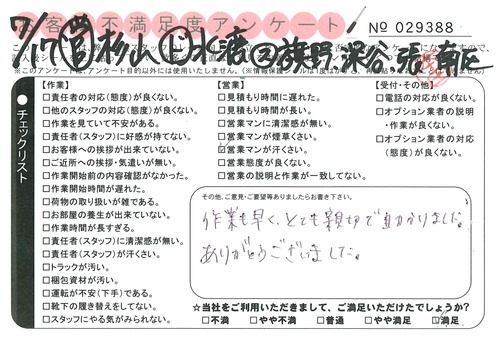 お客様不満足度アンケート
No 029388
※このアンケートは、アンケート目的以外には使用いたしません。
チェックリスト
【作業】
□責任者の対応(態度)が良くない。
□他のスタッフの対応(態度)が良くない。
□作業を見ていて不安がある。
□責任者(スタッフ)に好感が持てない。
□お客様への挨拶が出来ていない。
□ご近所への挨拶・気遣いが無い。
□作業開始前の内容確認がなかった。
□作業開始時間が遅れた。
□荷物の取り扱いが雑である。
□お部屋の養生が出来ていない。
□作業時間が長すぎる。
□責任者(スタッフ)に清潔感が無い。
□責任者(スタッフ)が汗くさい。
□トラックが汚い。
□梱包資材が汚い。
□運転が不安(下手)である。
□靴下の履き替えをしてない。
□スタッフにやる気がみられない。
【営業】
□見積もり時間に遅れた。
□見積もり時間が長い。
□営業マンに清潔感が無い。
□営業マンが煙草くさい。
□営業マンが汗くさい。
□営業態度が良くない。
□営業の説明と作業が一致してない。
【受付・その他】
□電話の対応が良くない。
□オプション業者の説明
・作業が良くない。
□オプション業者の対応
(態度)が良くない。
その他、ご意見・ご要望等ありましたらお書き下さい。
作業も早く、とても親切で助かりました。
ありがとうございました。
☆当社をご利用いただきまして、ご満足いただけたでしょうか?
□不満 □やや不満 □普通 □やや満足 □満足